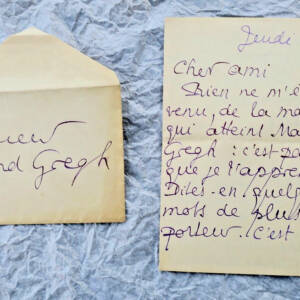 ieur
nd Gregh
Jeudi
Cher ami
Rien ne m'é
venu, de la ma
qui atteint Ma
Gregh : c'est pa
que je l'appren
Dites-en quelq
mots de plus
porteur. C'est